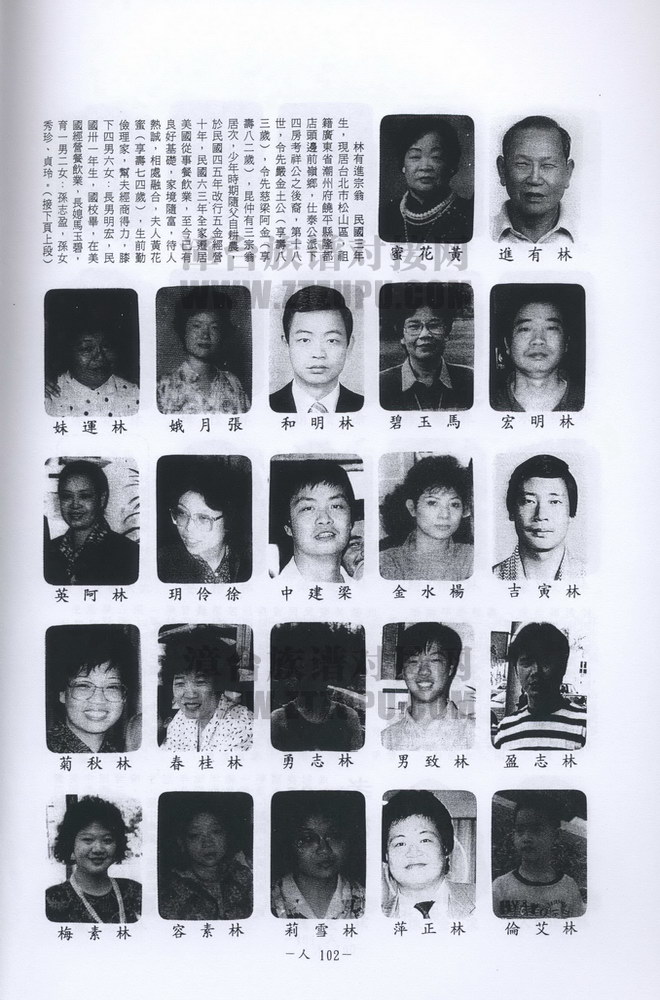 林有進宗翁　民國三年
生，現居台北市松山區，祖
籍廣東省潮州府饒平縣隆都
店頭邊前嶺鄉，仕泰公派下
四房考祥公之後裔，第十八
世，令先嚴金土公（享壽八
三歲），令先慈梁阿金（享
壽八二歲），昆仲有三宗翁
居次，少年時期隨父自耕農，
於民國四五年改行五金經營
十年，民國六三年全家遷居
美國從事餐飲業，至今已有
良好基礎，家境隨富，待人
熱誠，相處融合，夫人黃花
蜜（享壽七四歲），生前勤
儉理家，幫夫經商得力，膝
下四男六女：長男明宏，民
國卅一年生，國校畢，在美
國經營餐飲業，長媳馬玉碧，
育一男二女：孫志盈，孫女
秀珍、貞玲。（接下頁上段）
林有進
黃花蜜
漳台族谱对接网
WWW.ZTZUPU.COM
林明宏
馬玉碧
林明和
張月娥
林運妹
林寅吉
楊水金
梁建中
徐伶玥
林阿英
漳台族谱对接网
WWW.ZTZUPU.COM
林志盈
林致男
林志勇
林桂春
林秋菊
林艾倫
林正萍
林雪莉
林素容
林素梅
－人 102－